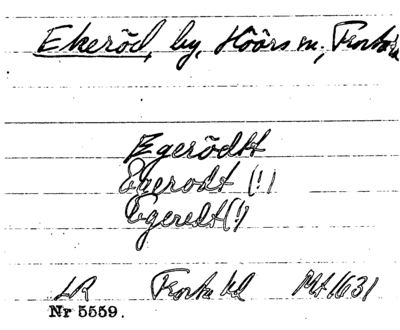 Ekeröd, by, Höörs sn., Frosta hd
Egerödtt
Egerodt (!)
Egeredt (!)
LR Frosta hd Mt 1631
Nr 5559.